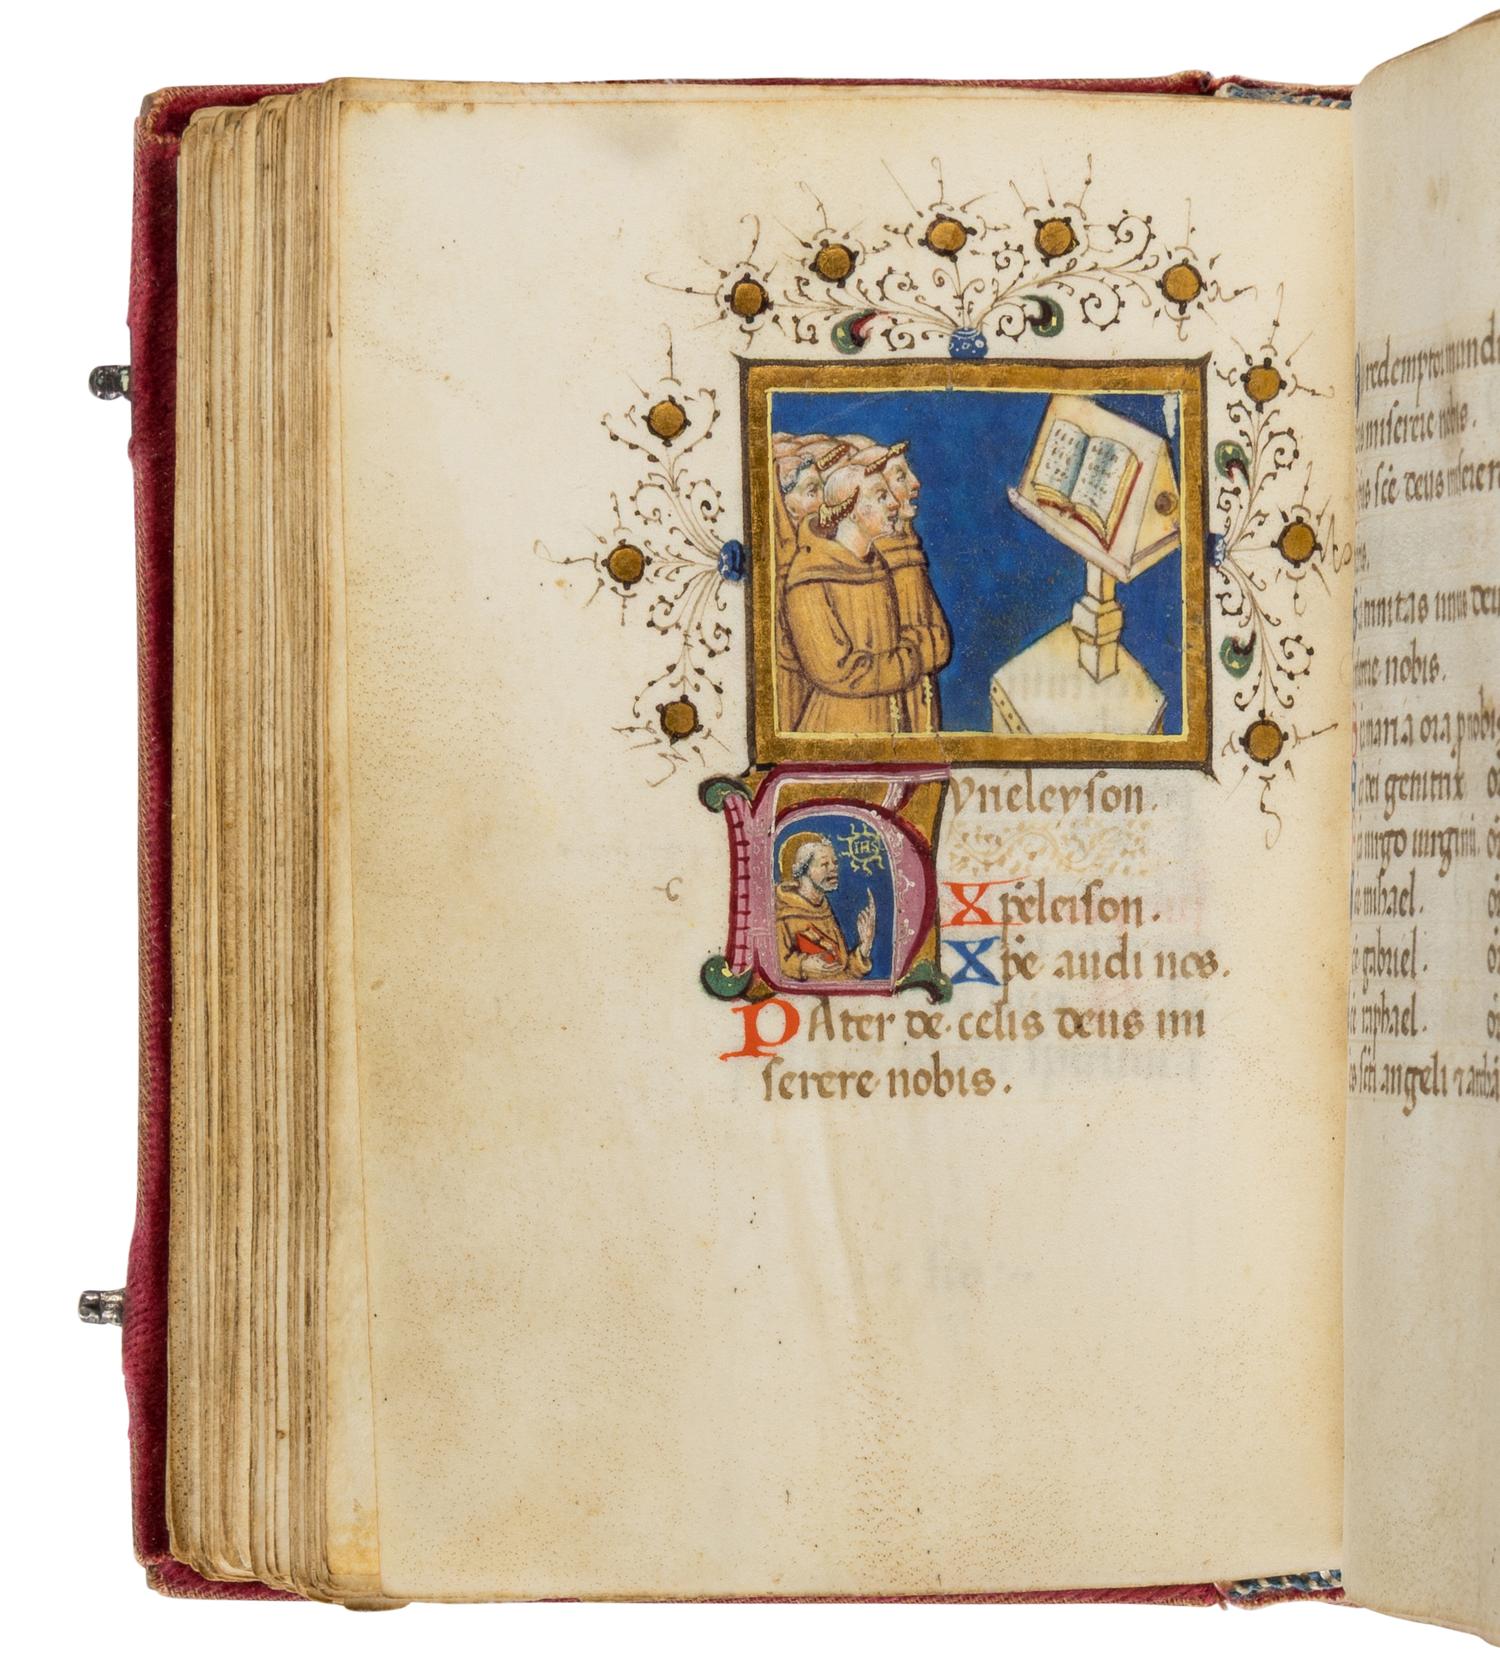 Kyrieleyson.
Xpeleison.
Xpe audi nos.
PAter de celis deus mi
serere nobis.
IHS
redemptor mundi
miserere nobis.
sce deus miserere
trinitas unus deus
nobis.
maria ora pro nobis
dei genitrix
uirgo uirginu.
mihael.
gabriel.
raphael.
sci angeli &